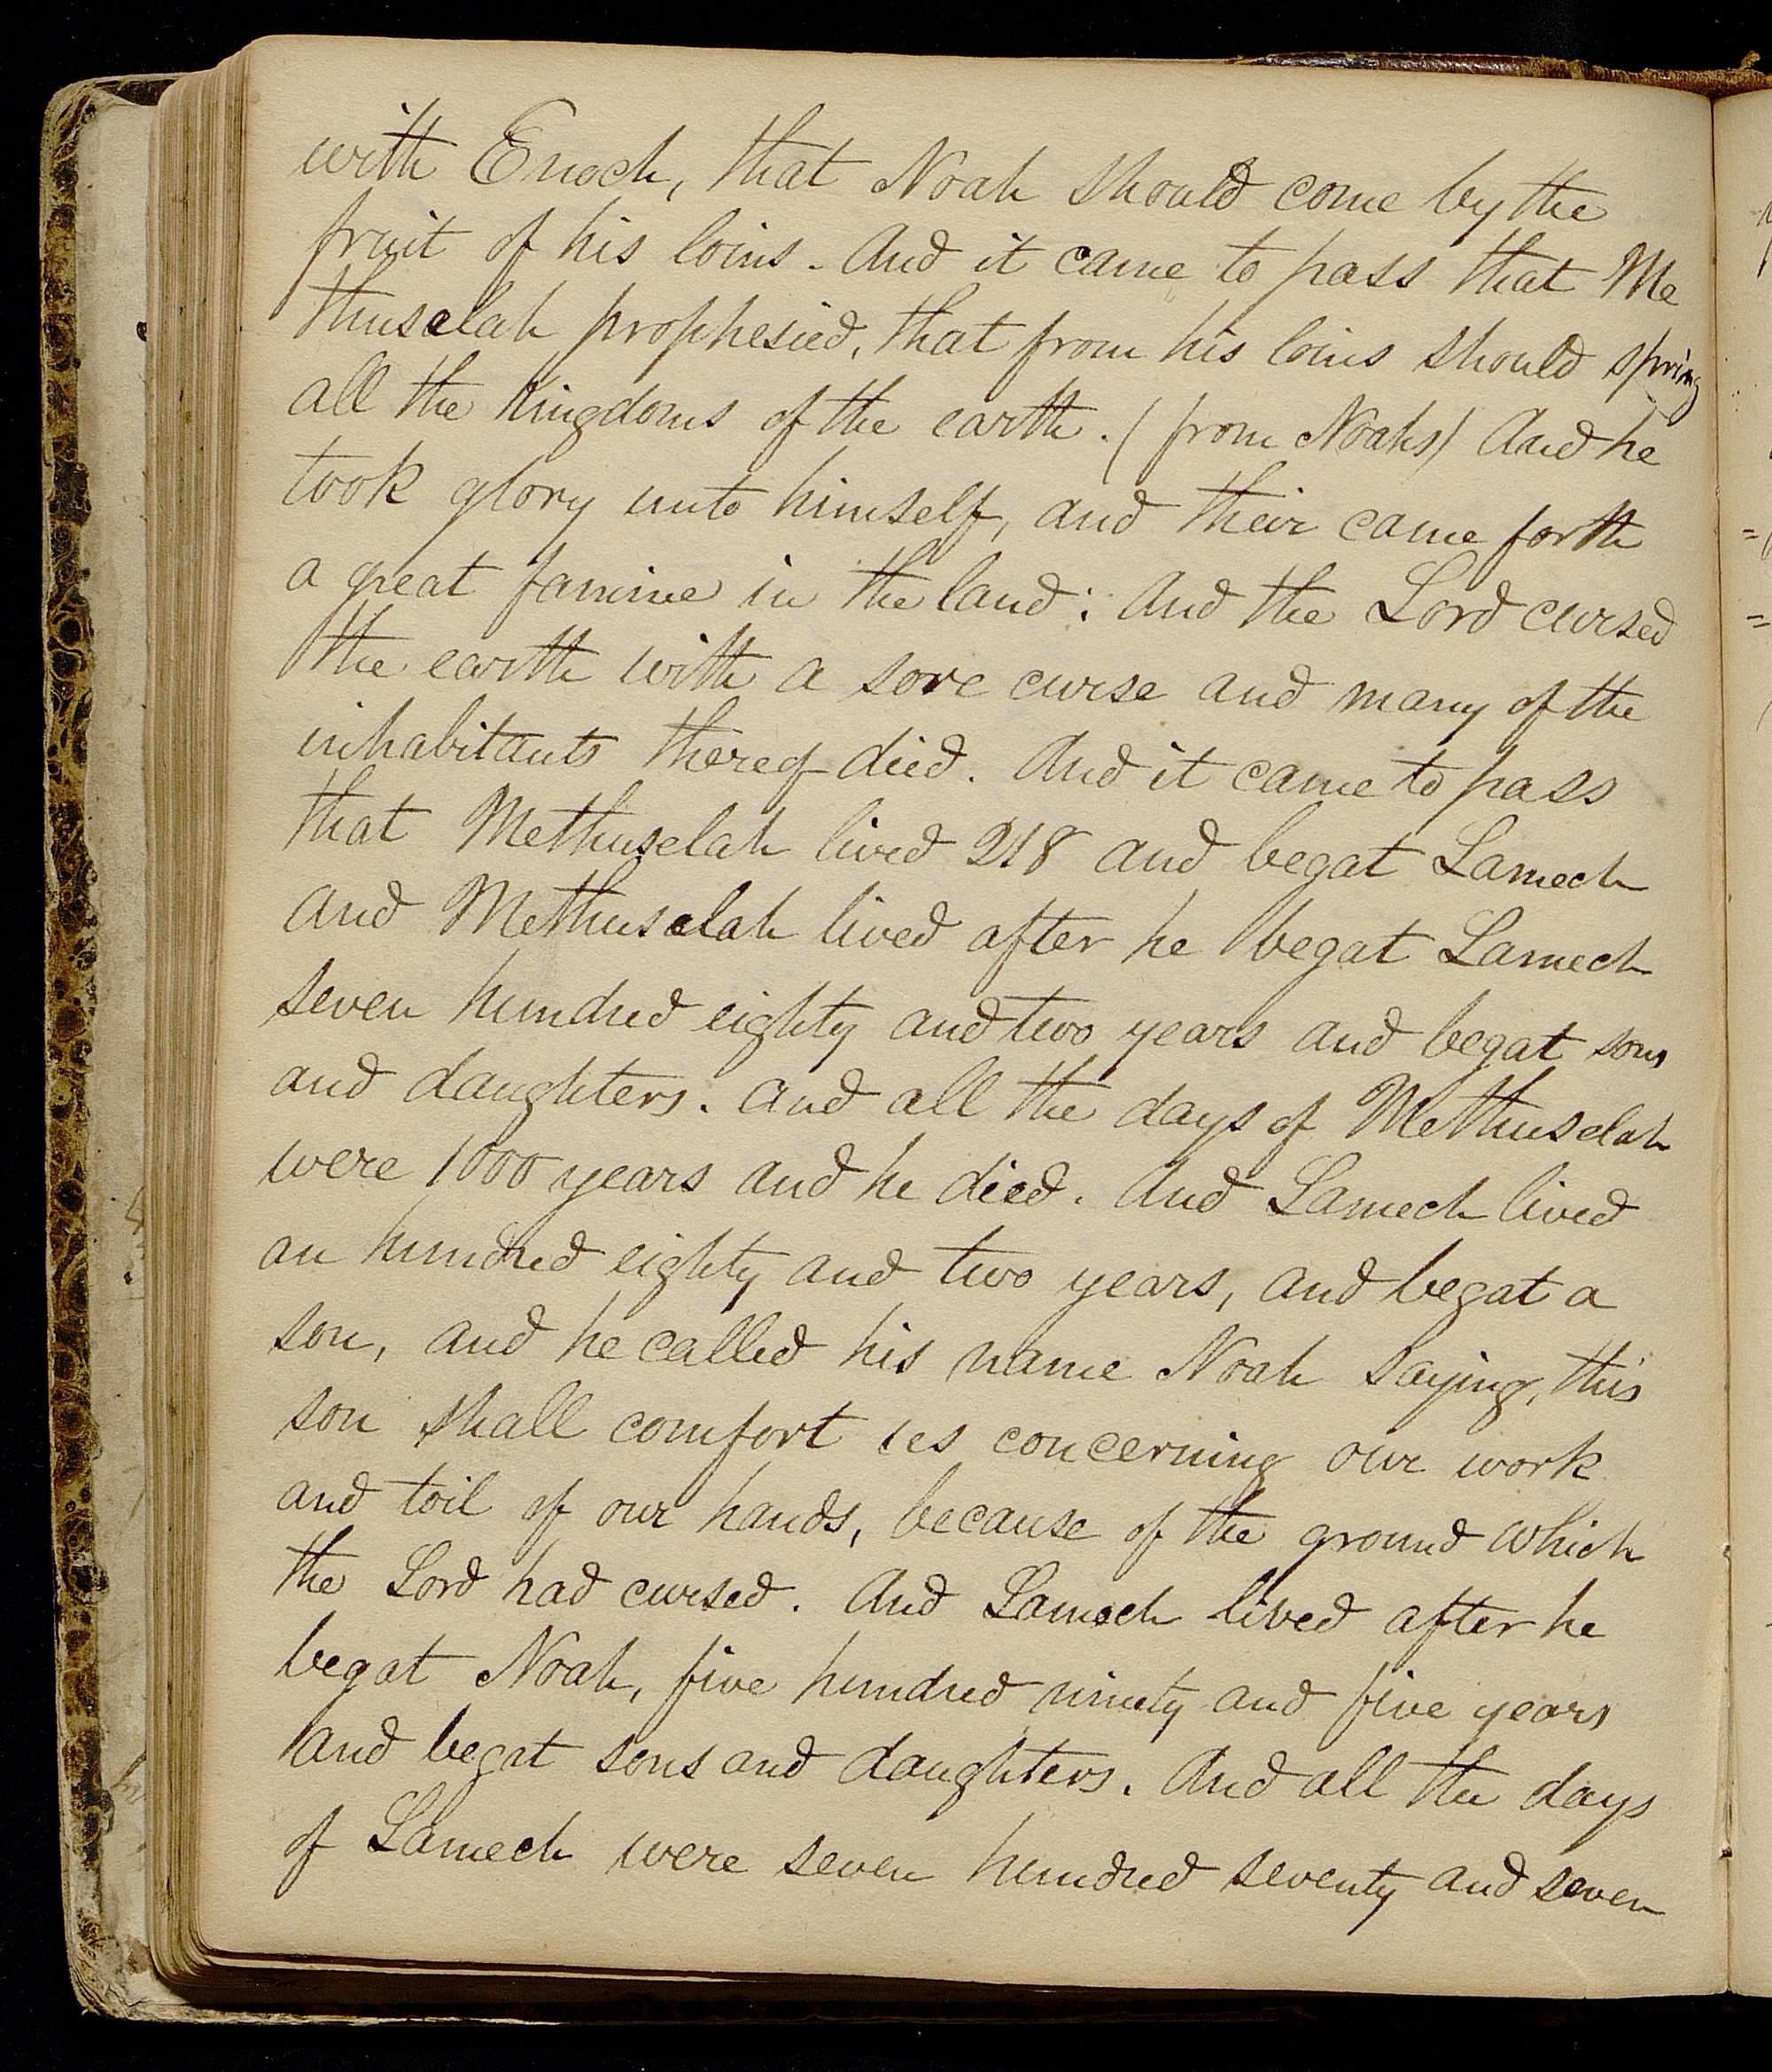 with Enoch, that Noah should come by the
fruit of his loins. And it came to pass that Me
thuselah prophesied, that from his loins should spring
all the Kingdoms of the earth. (from Noahs) And he
took glory unto himself, and their came forth
a great famine in the land; And the Lord cursed
the earth with a sore curse and many of the
inhabitants thereof died. And it came to pass
that Methuselah lived 218 and begat Lamech
and Methuselah lived after he begat Lamech
seven hundred eighty and two years and begat sons
and daughters. And all the days of Methuselah
were 1000 years and he died. And Lamech lived
an hundred eighty and two years, and begat a
son, and he called his name Noah saying, this
son shall comfort us concerning our work
and toil of our hands, because of the ground which
the Lord had cursed. And Lamech lived after he
begat Noah, five hundred ninety and five years
and begat sons and daughters. And all the days
of Lamech were seven hundred seventy and seven